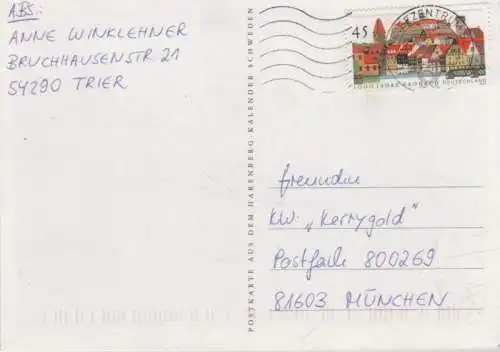 ABS.:
ANNE WINKLEHNER
BRUCHHAUSENSTR. 21
54290 TRIER
POSTKARTE AUS DEM HARENBERG-KALENDER SCHWEDEN
45
1000 JAHRE KRONACH DEUTSCHLAND
freundin
KW. „Kerrygold"
Postfach 800269
81603 MÜNCHEN